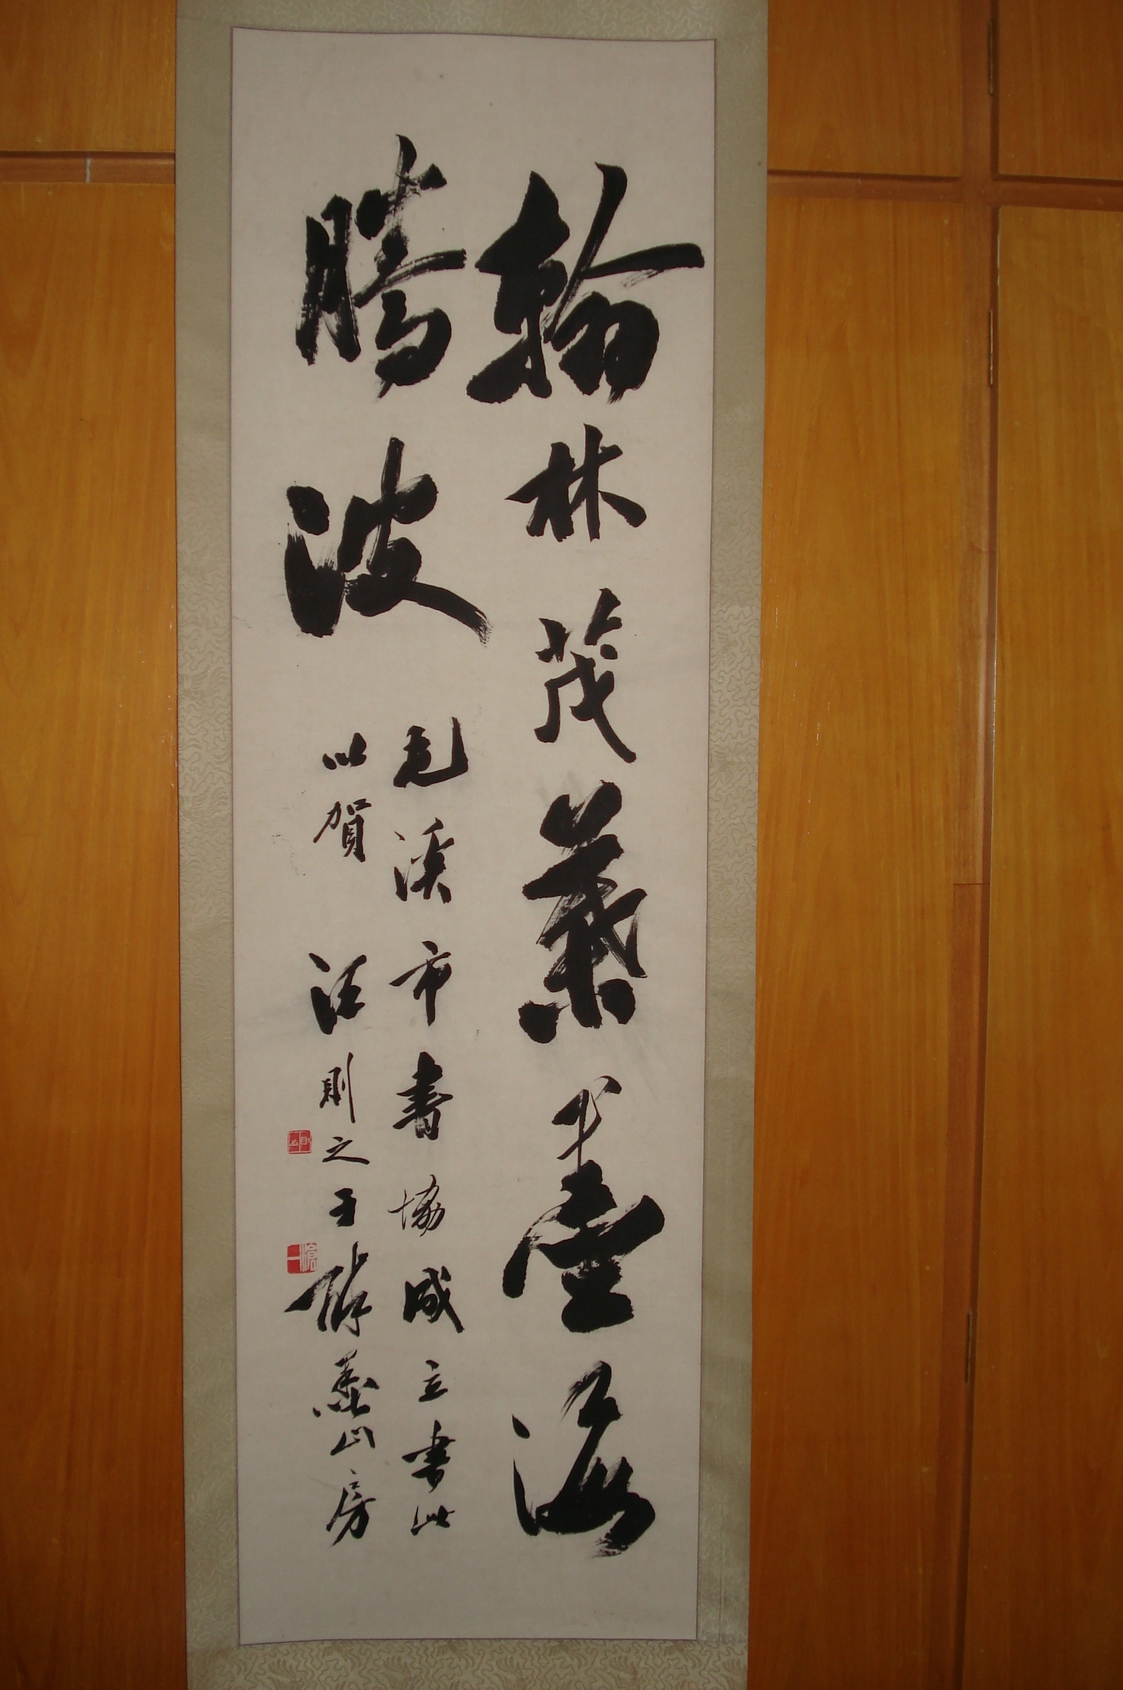 翰林茂葉海
騰波
溪市書協成立書此
以賀 汪則之于墨山房